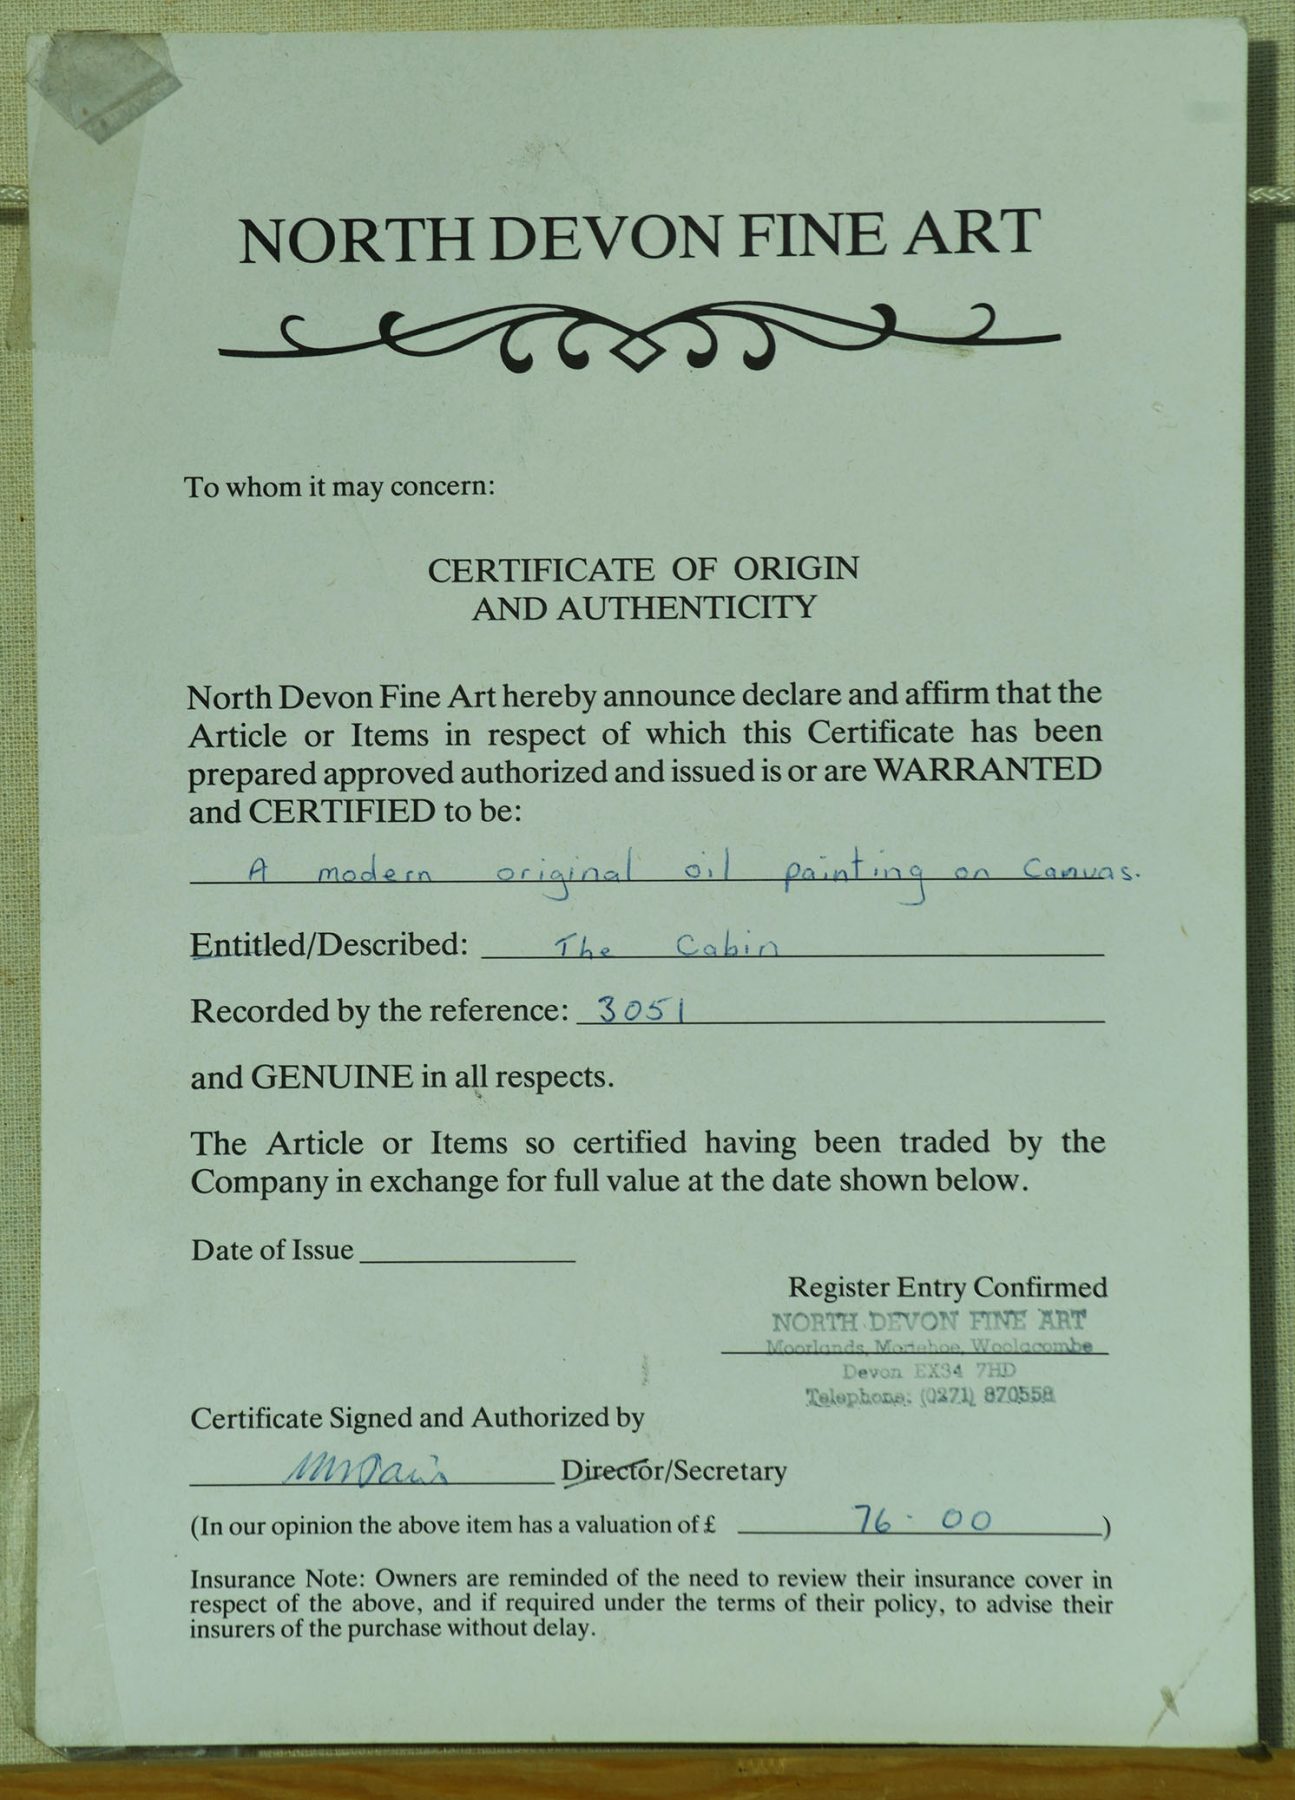 NORTH DEVON FINE ART
To whom it may concern:
CERTIFICATE OF ORIGIN
AND AUTHENTICITY
North Devon Fine Art hereby announce declare and affirm that the
Article or Items in respect of which this Certificate has been
prepared approved authorized and issued is or are WARRANTED
and CERTIFIED to be:
A modern original oil painting on Canvas.
Entitled/Described: The Cabin
Recorded by the reference: 3051
and GENUINE in all respects.
The Article or Items so certified having been traded by the
Company in exchange for full value at the date shown below.
Date of Issue
Register Entry Confirmed
NORTH DEVON FINE ART
Moorlands, Mortehoe, Woolacombe
Devon EX34 7HD
Telephone: (0271) 870558
Certificate Signed and Authorized by
Director/Secretary
(In our opinion the above item has a valuation of £ 76-00)
Insurance Note: Owners are reminded of the need to review their insurance cover in
respect of the above, and if required under the terms of their policy, to advise their
insurers of the purchase without delay.